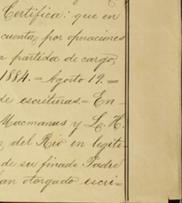 Certifica: que en
cuenta por operaciones
a partida de cargo
1884. - Agosto 19. -
de escrituras. - En
Macmanus y
del Rio en legíti-
de su finado Padre
an otorgado escri-